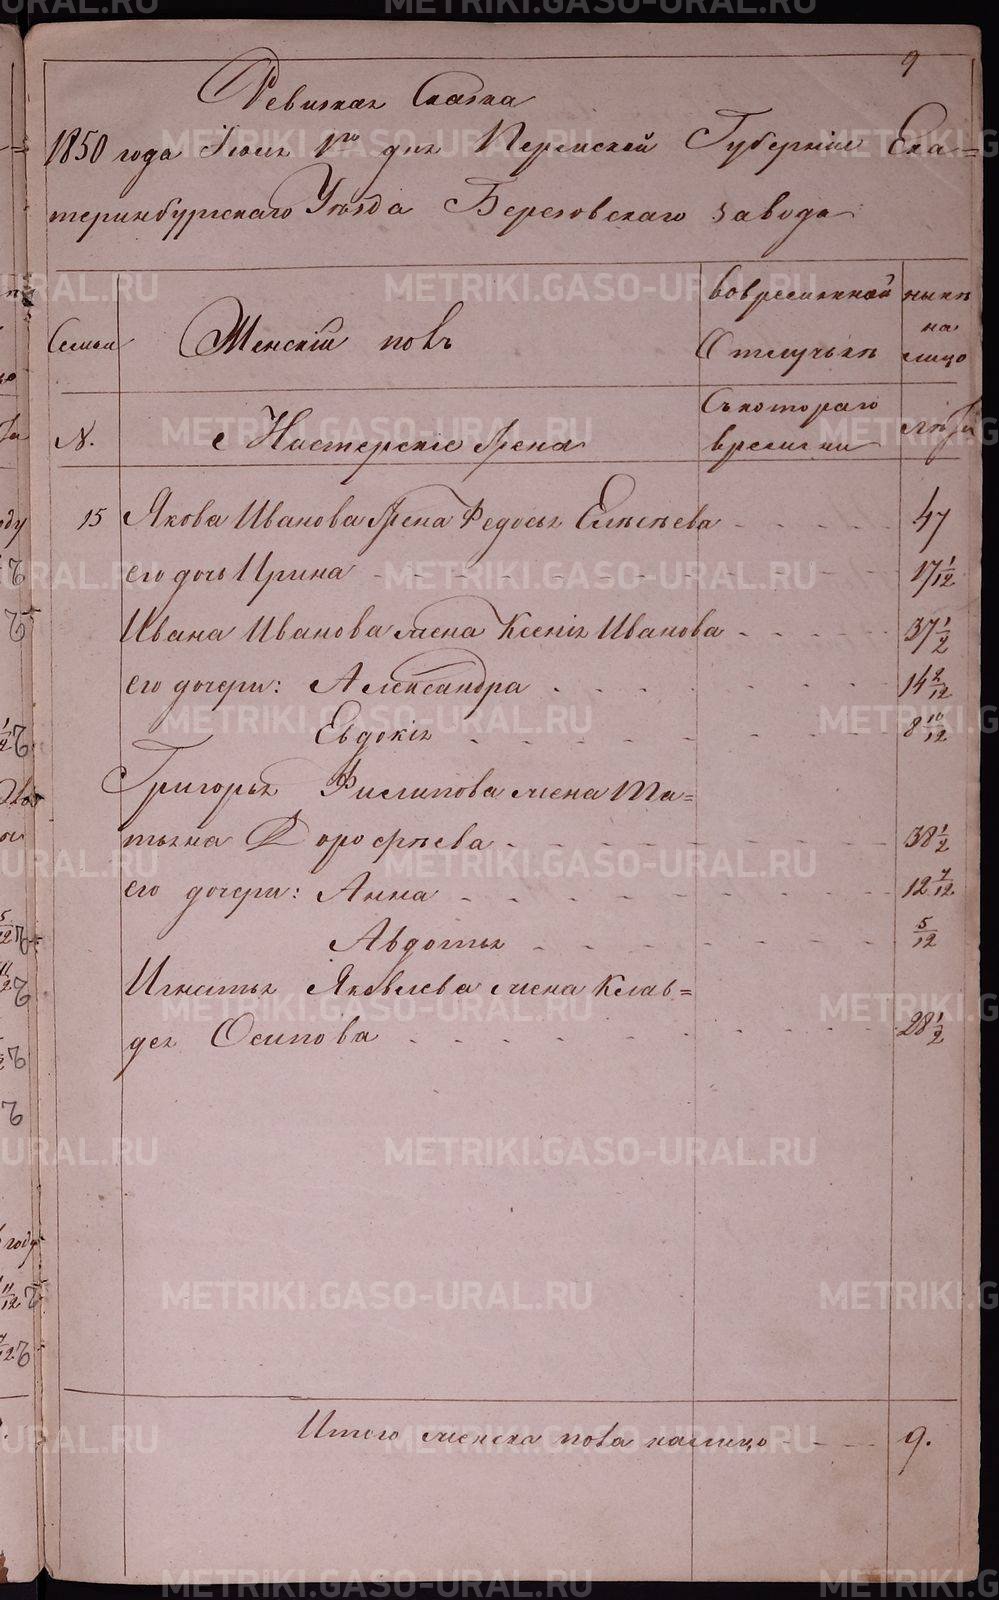 9
Ревизкая Сказка
1850 года Iюля 1го дня Пермской Губернiи Ека=
теринбургскаго Уѣзда Березовскаго завода
Семьи
Женскiй полъ
Вовременной
Отлучькѣ
нынѣ
на
лицо
N.
Мастерскiе Жена
Скотораго
времяни
лѣта
15 Якова Иванова Жена Федосья Елисѣева 47
его дочь Ирина 17 1/12
Ивана Иванова жена Ксенiя Иванова 37 1/2
его дочери: Александра 14 2/12
Евдокiя 8 10/12
Григорья Филипова жена Та=
тьяна Дорофѣева 38 1/2
его дочери: Анна 12 7/12
Авдотья 5/12
Игнатья Яковлева жена Клав=
дея Осипова 28 1/2
Итого женска пола налицо 9.
METRIKI.GASO-URAL.RU